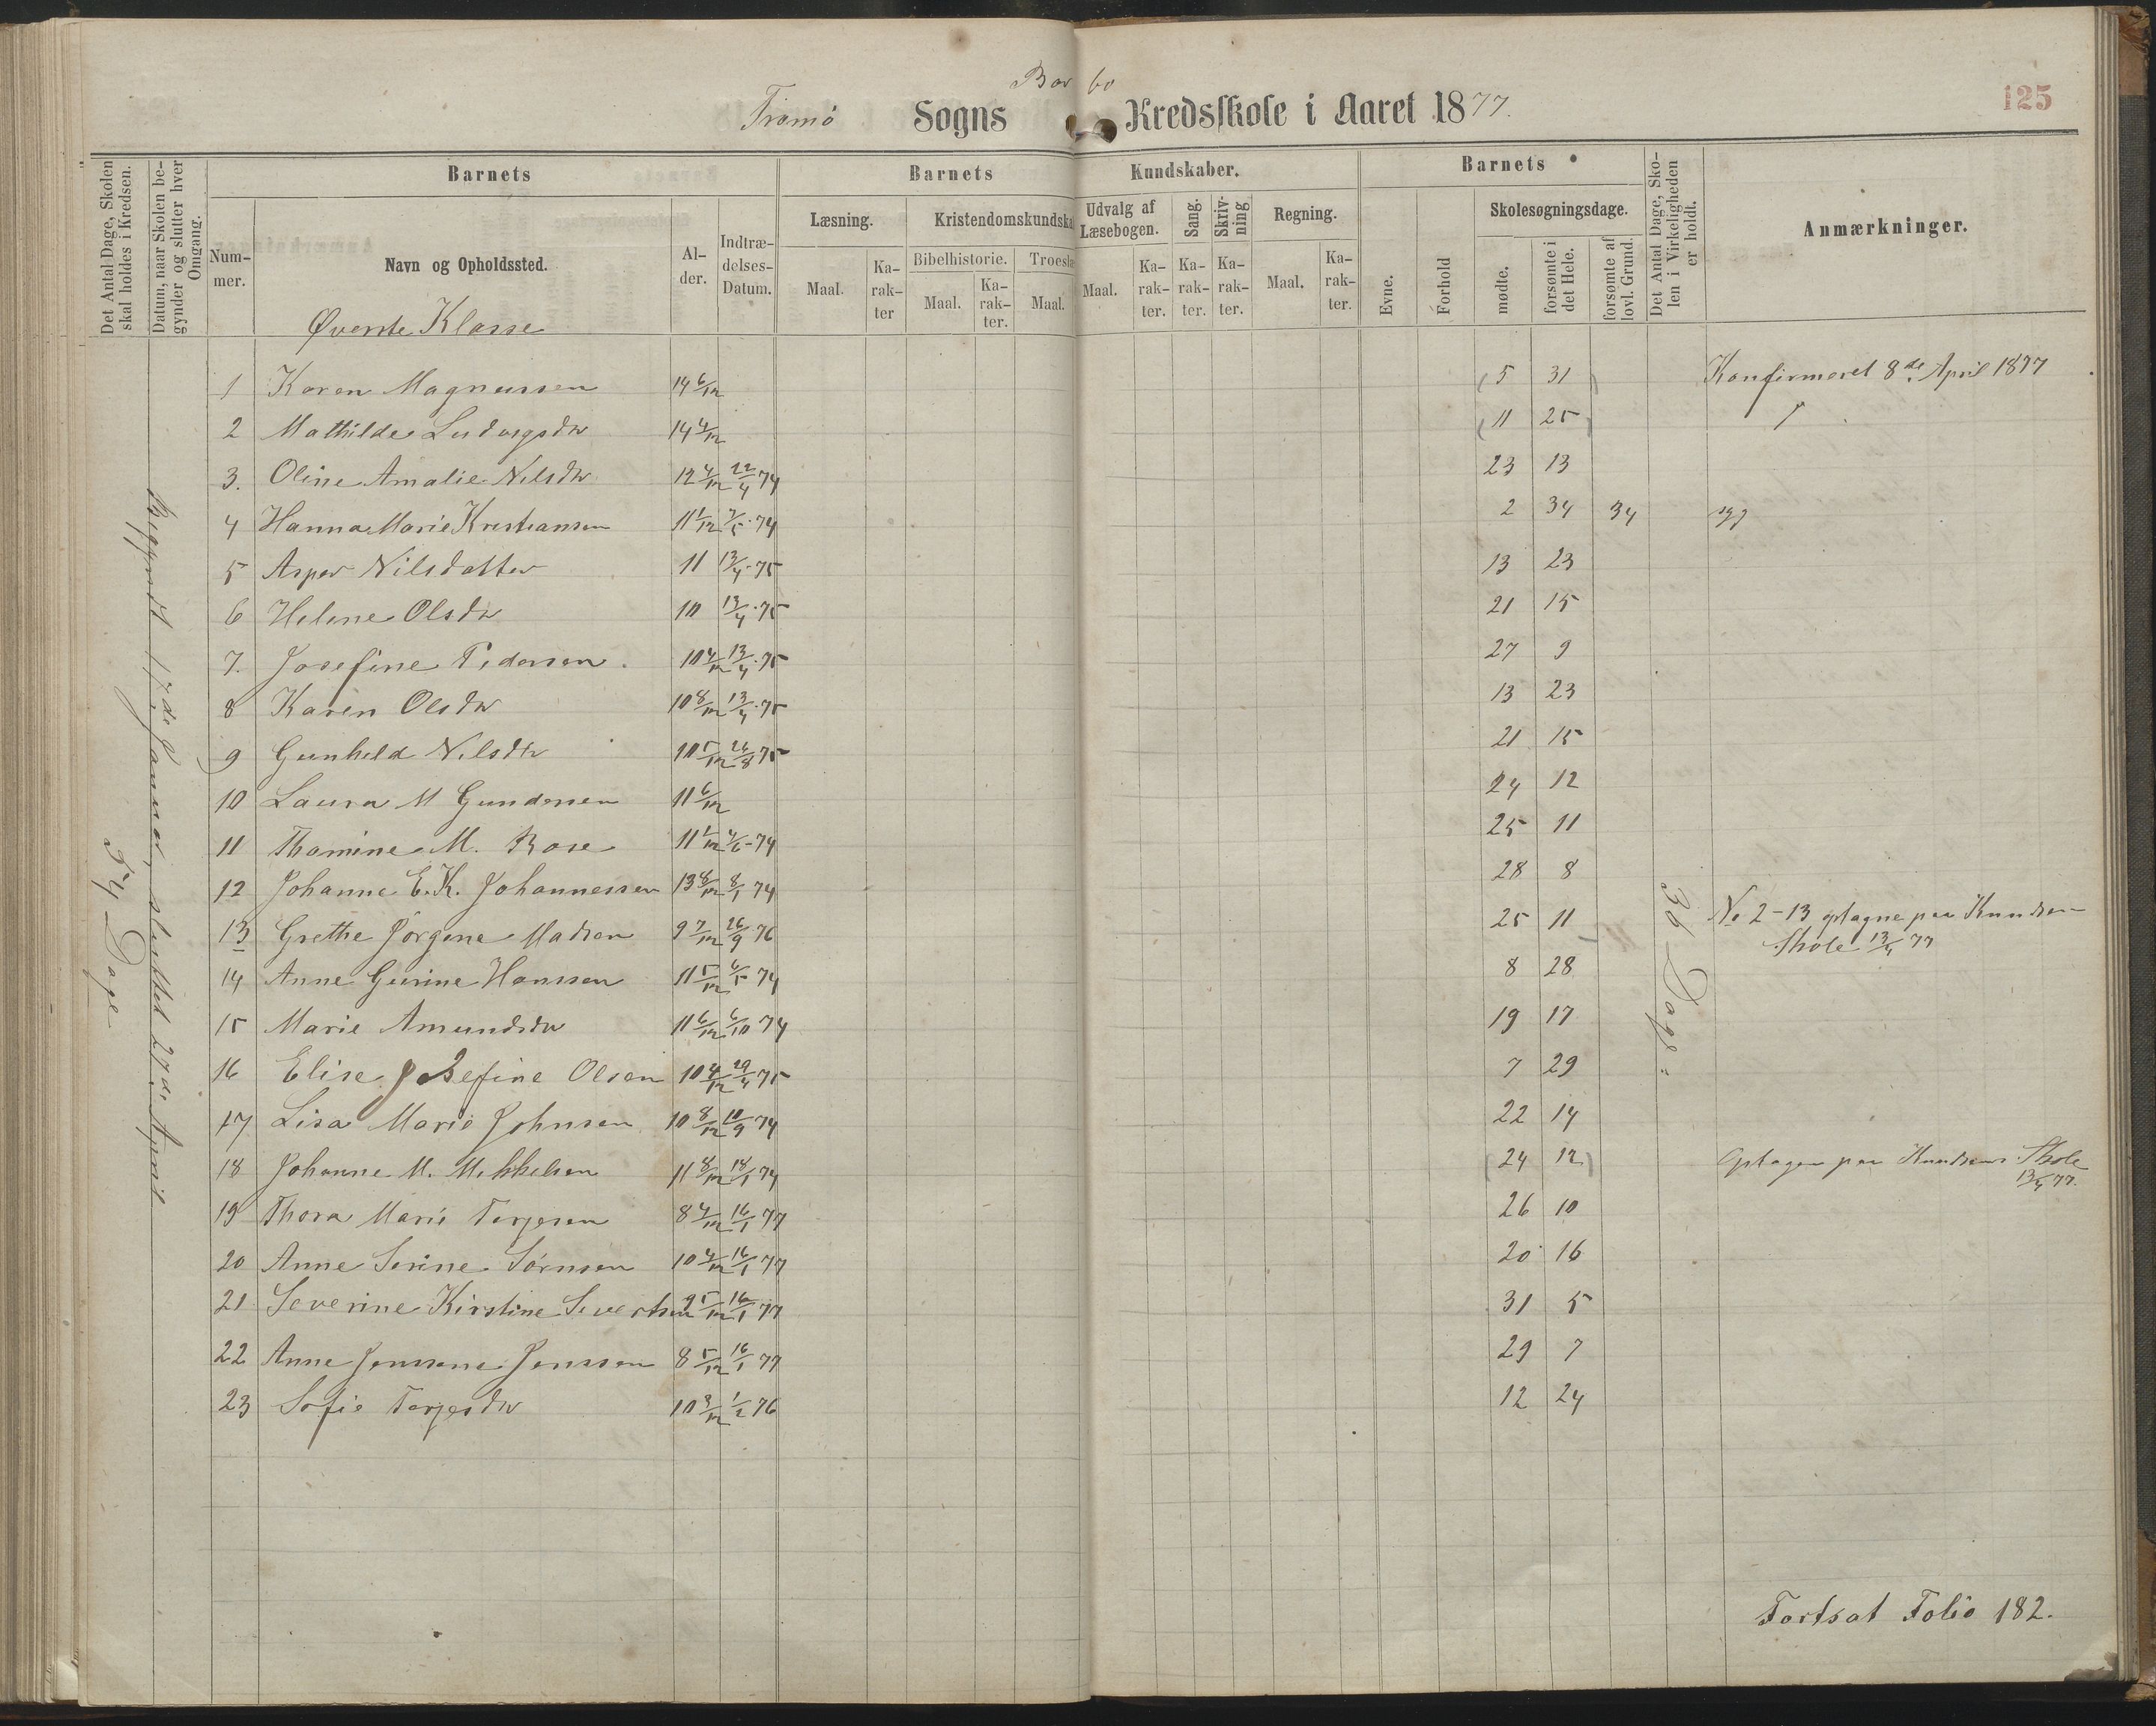 Barbo
Tromö Sogns Kredsskole i Aaret 1877.
125
Det Antal Dage, Skolen skal holdes i Kredsen.
Datum, naar Skolen begynder og slutter hver Omgang.
Barnets
Nummer.
Navn og Opholdssted.
Alder.
Indtrædelses-Datum.
Barnets Kundskaber.
Læsning.
Maal.
Karakter
Kristendomskundska
Bibelhistorie.
Maal.
Karakter.
Troesl
Maal.
Udvalg af Læsebogen.
Maal.
Karakter.
Sang.
Karakter.
Skrivning
Karakter.
Regning.
Maal.
Karakter.
Barnets
Evne.
Forhold
Skolesøgningsdage.
mødte.
forsømte i det Hele.
forsømte af lovl. Grund.
Det Antal Dage, Skolen i Virkeligheden er holdt.
Anmærkninger.
Øverste Klasse
54 Dage
Begyndt 17de Januar, sluttet 27de April
1 Karen Magnussen 14 6/12 (5 31) Konfirmeret 8de April 1877
2 Mathilde Ludvigsdtr 14 4/12 (11 25)
3. Oline Amalie Nilsdtr 12 4/12 22/4 74 23 13
4 Hanna Marie Kristiansen 11 1/12 7/5 · 74 2 34 34 syg
5 Asper Nilsdatter 11 13/4 · 75 13 23
6 Helene Olsdtr 10 13/4 · 75 21 15
7. Josefine Pedersen. 10 4/12 13/4 · 75 27 9
8 Karen Olsdtr 10 8/12 13/4 · 75 13 23
9 Gunhild Nilsdtr 10 5/12 26/8 75 21 15
10 Laura M Gundersen 11 6/12 24 12
11 Thomine M. Bose 11 1/12 4/6 - 74 25 11
12 Johanne E. K. Johannessen 13 8/12 8/1 74 28 8
13 Grethe Jörgine Madsen 9 7/12 26/9 76 25 11 No 2-13 optagne paa Knudsen Skole 13/4 77
14 Anne Gurine Hanssen 11 5/12 6/5 74 8 28
15 Marie Amundsdtr 11 6/12 6/10 74 19 17
16 Elise Josefine Olsen 10 4/12 29/4 75 7 29
17 Lisa Marie Johnsen 10 8/12 10/9 74 22 14
18 Johanne M. Mikkelsen 11 8/12 18/1 74 (24 12) Optagen paa Knudsens Skole 13/4 77.
19 Thora Marie Terjesen 8 4/12 16/1 77 26 10
20 Anne Serine Sörnsen 10 4/12 16/1 77 20 16
21 Severine Kirstine Sivertsen 9 5/12 16/1 77 31 5
22 Anne Jenssene Jenssen 8 5/12 16/1 77 29 7
23 Sofie Terjesdtr 10 3/12 1/2 76 12 24
36 Dage
Fortsat Folio 182.